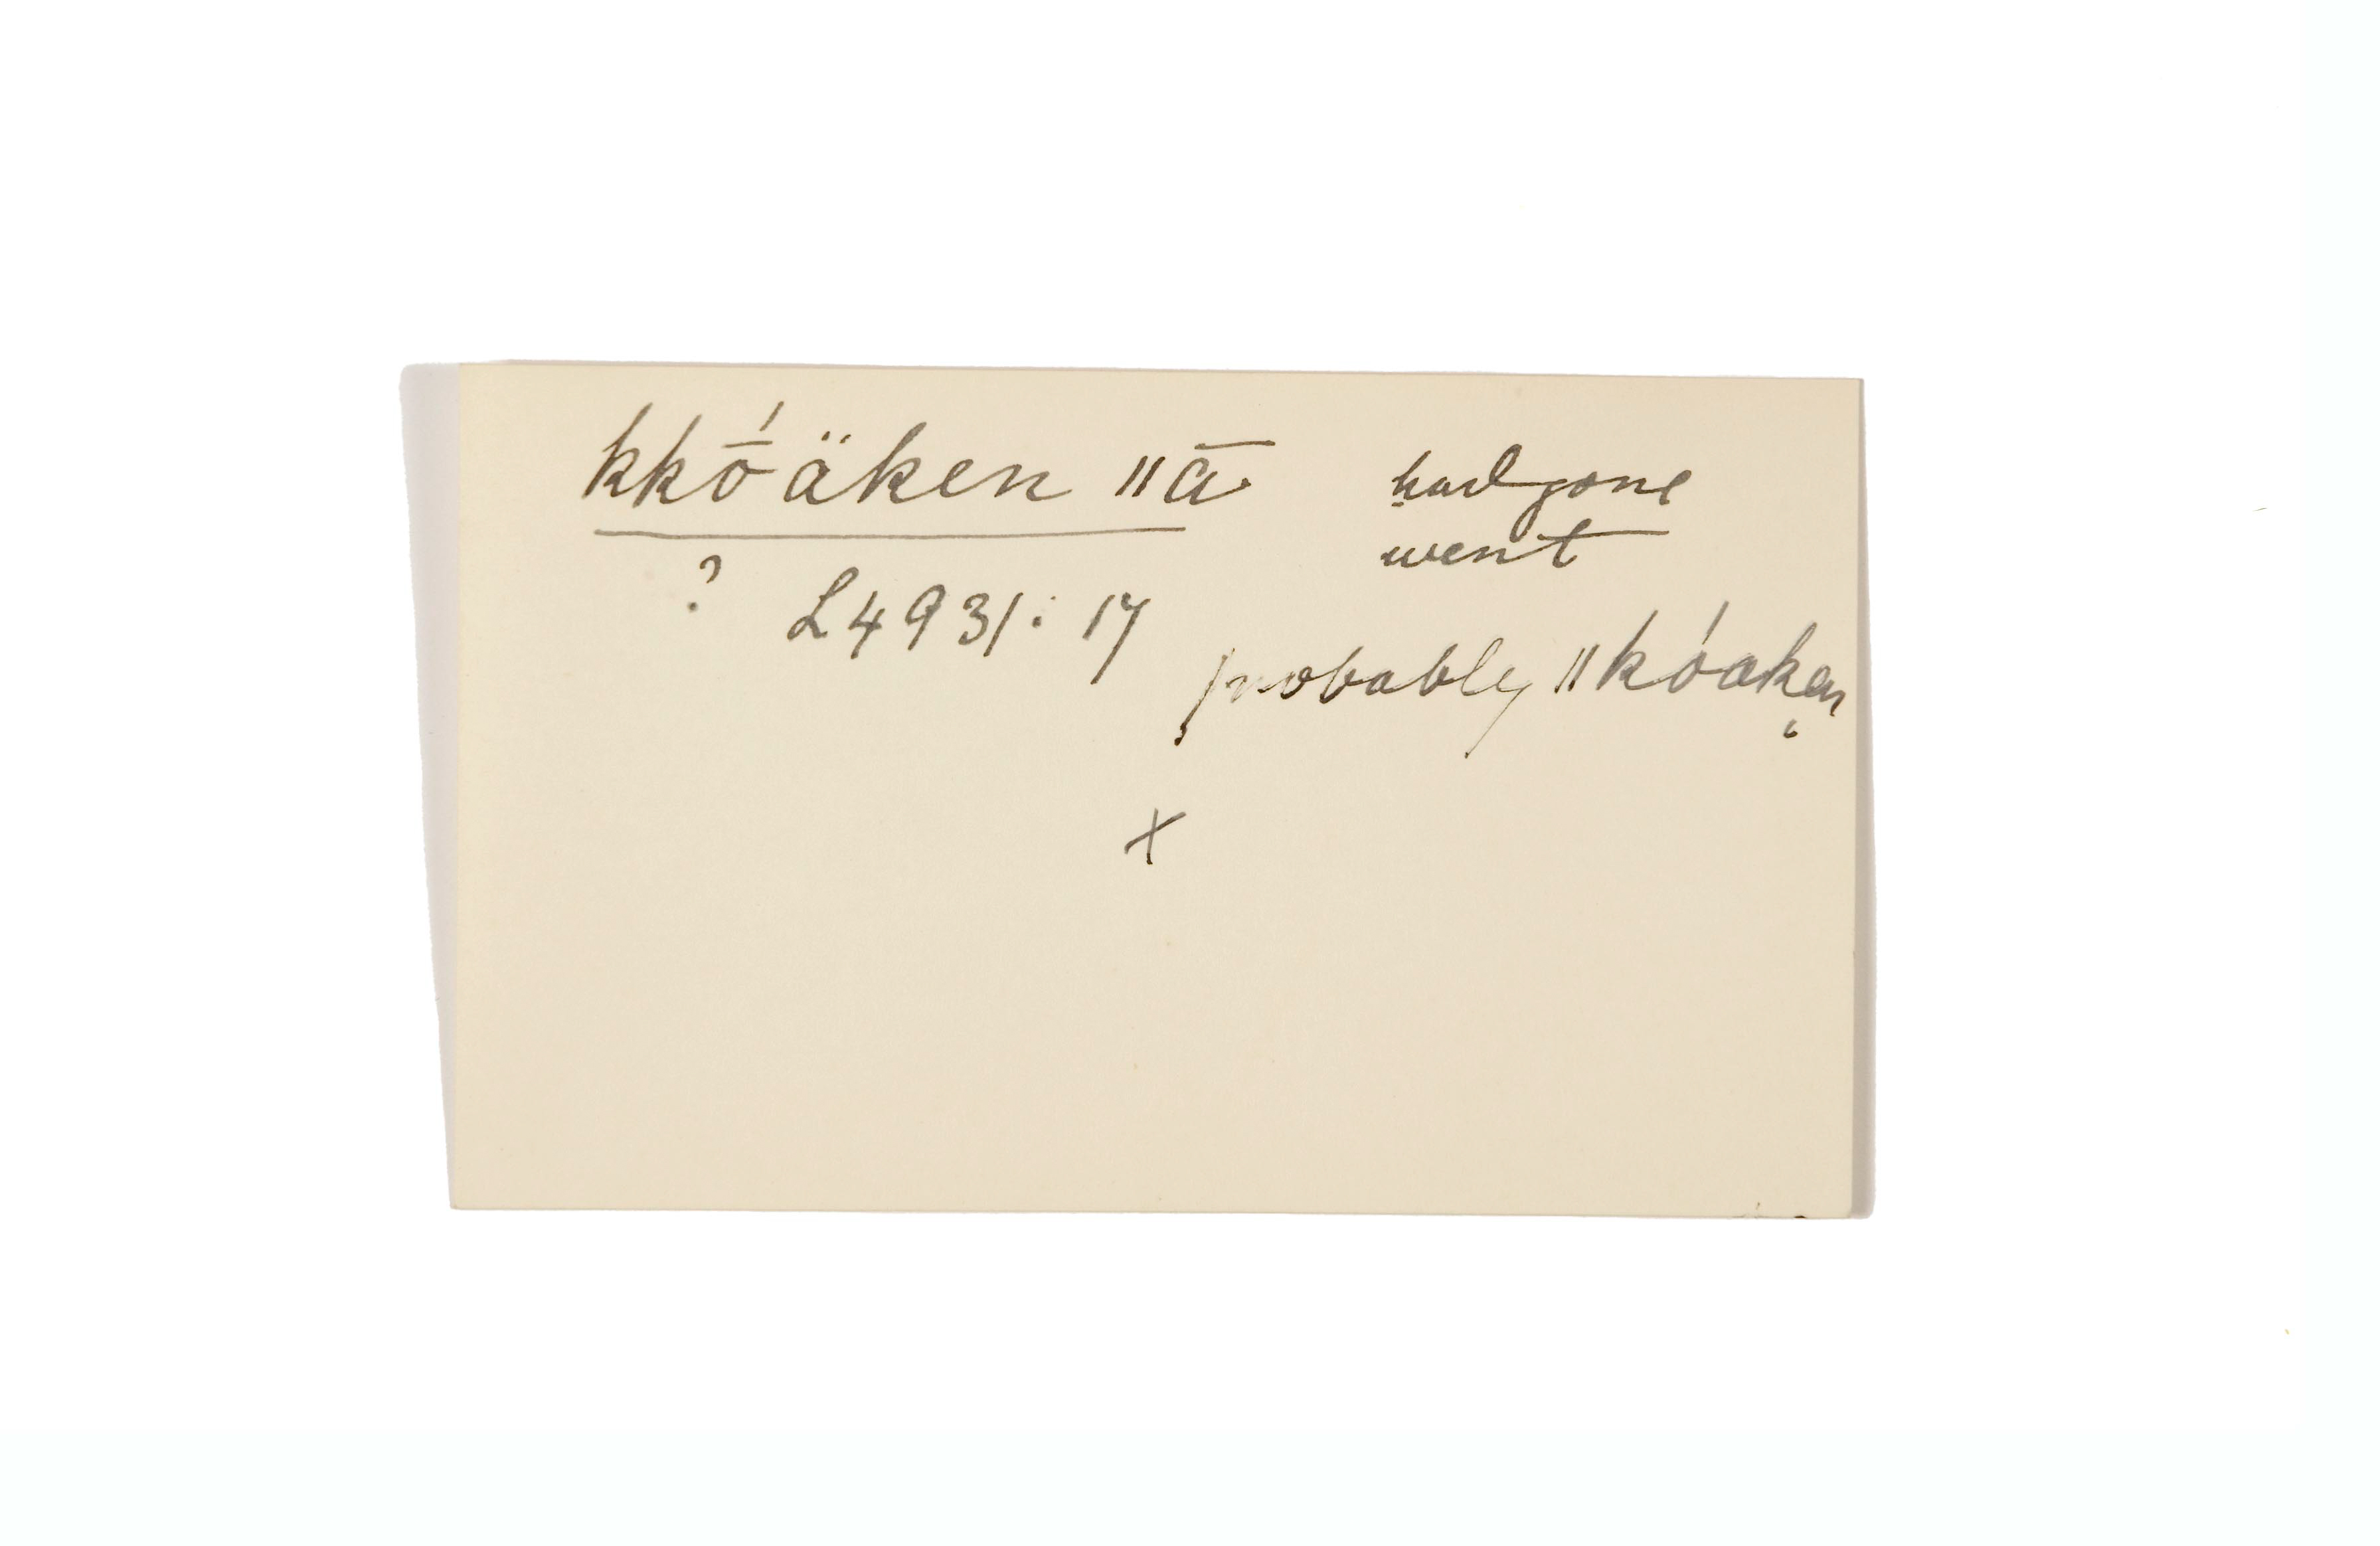 kkṓäken ǁā had gone
went
? L4931:17
probably ǁkóaken
x